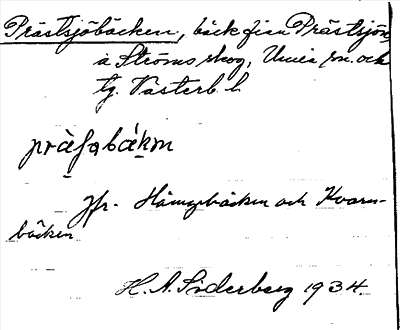 Prästsjöbäcken, bäck från Prästsjön
å Ströms skog, Umeå sn. och
tg. Västerb. l.
Jfr. Hamrebäcken och Kvarn-
bäcken
H. A. Söderberg 1934.